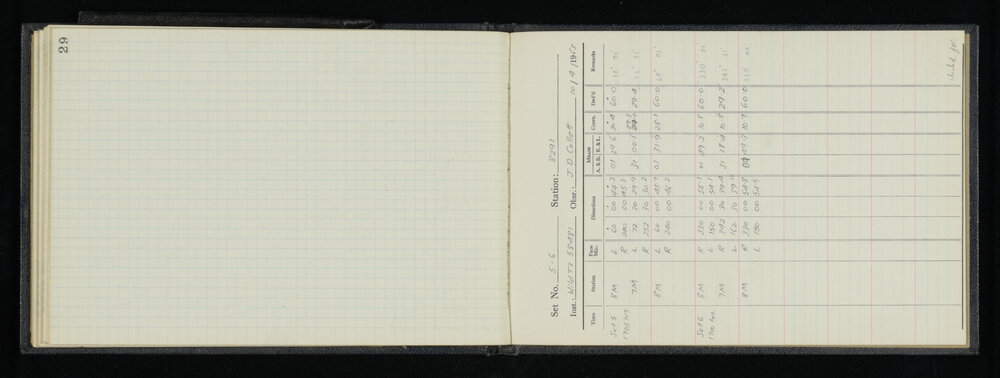 29
Set No. 5-6 Station: 8291
Inst.: Wild T2 58481 Obsr.: J. D. Collett 10/4/1963
Time Station Face Mic. Directions Means A. & B. R. & L. Corrn. Ded'd Remarks
Set 5 8M L 60 00 44.3 01 29.6 30.4 60.0 01'
1705 hrs. R 240 00 45.3
7M L 72 30 29.9 31 00.1 29.3 29.4 31'
R 252 30 30.2
8M L 60 00 45.7 01 31.9 28.1 60.0 60° 01'
R 240 00 46.2
Set 6 8M R 330 00 55.1 01 49.2 10.8 60.0 330° 01'
1710 hrs. L 150 00 54.1
7M R 342 30 39.4 31 18.4 10.8 29.2 342° 31'
L 162 30 39.0
8M R 330 00 54.8 49.3 10.7 60.0 330 00'
L 150 00 54.5